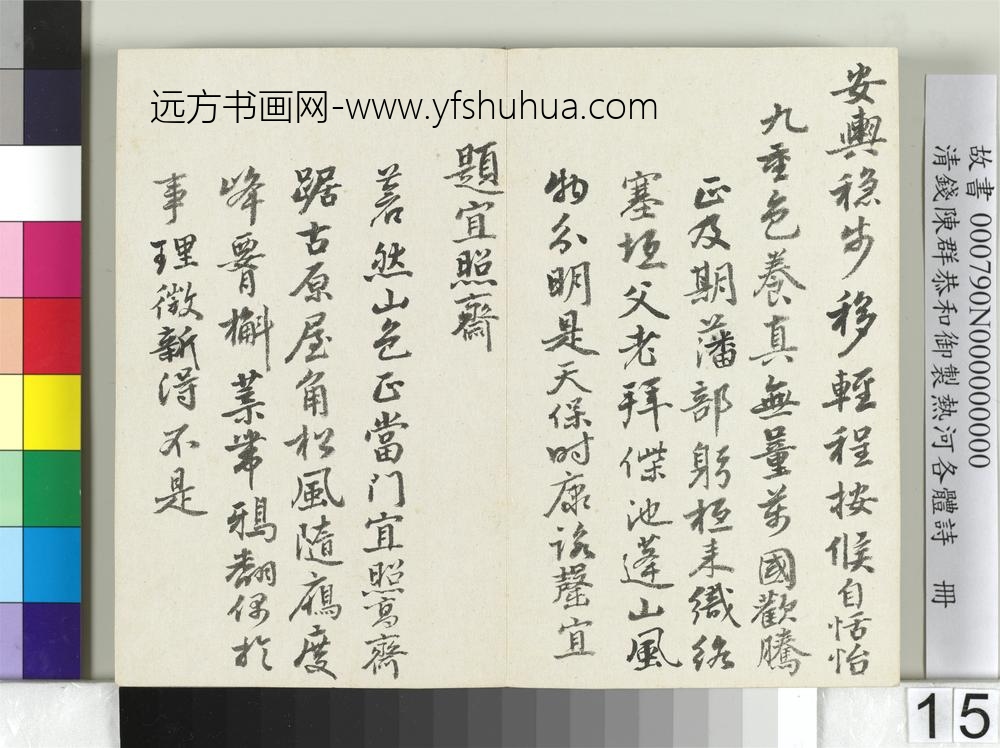 远方书画网-www.yfshuhua.com
安輿穩步移輕程按候自恬怡
九重色養真無量萬國歡騰
正及期藩部躬桓來織絡
塞垣父老拜傑池蓬山風
物分明是天保時康詠罄宜
題宜照齋
蒼然山色正當門宜照高齋
踞古原屋角松風隨雁度
峰霄槲葉帶鴉翻偶於
事理徵新得不是
故書000790N000000000
清錢陳群恭和御製熱河各體詩 冊
15